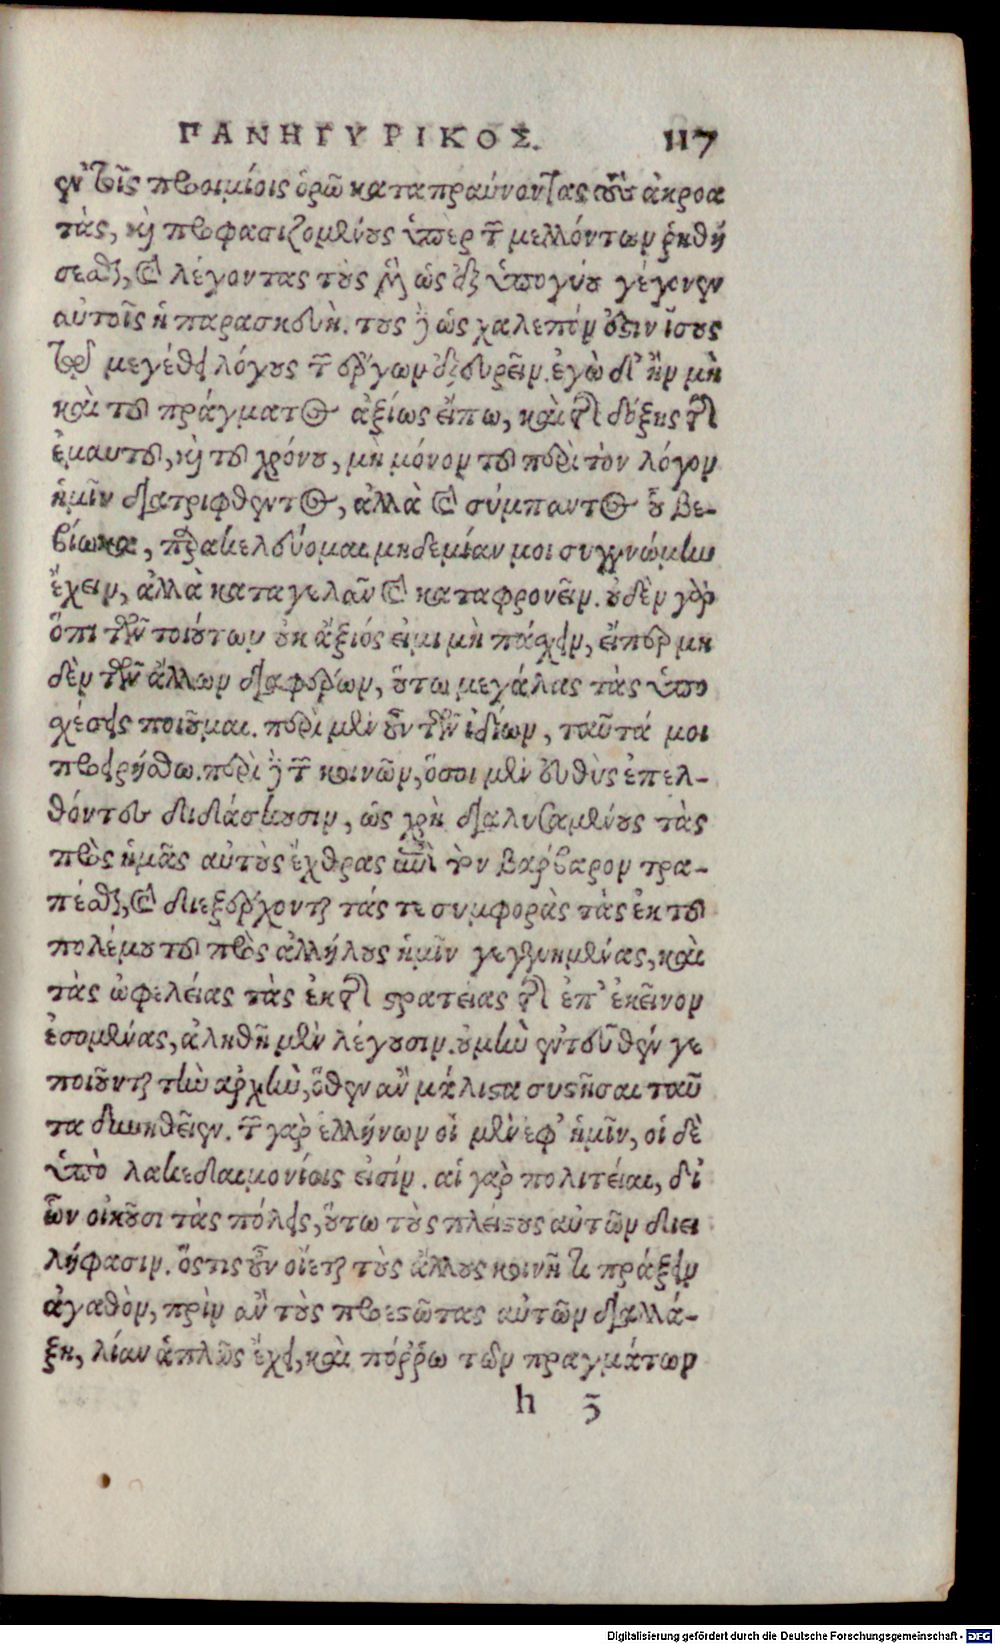 ΠΑΝΗΓΥΡΙΚΟΣ. 117
ἐν τοῖς προοιμίοις ὁρῶ καταπραΰνοντας τοὺς ἀκροα
τὰς, καὶ προφασιζομένους ὑπὲρ τῶν μελλόντων ῥηθή
σεσθαι, καὶ λέγοντας τοὺς μὲν ὡς ἐξ ὑπογύου γέγονεν
αὐτοῖς ἡ παρασκευὴ. τοὺς δὲ ὡς χαλεπόν ἐστιν ἴσους
τῷ μεγέθει λόγους τῶν ἔργων ἐξευρεῖν. ἐγὼ δ' ἢν μὴ
καὶ τοῦ πράγματος ἀξίως εἴπω, καὶ τῆς δόξης τῆς
ἐμαυτοῦ, καὶ τοῦ χρόνου, μὴ μόνον τοῦ περὶ τὸν λόγον
ἡμῖν διατριφθέντος, ἀλλὰ καὶ σύμπαντος οὗ βε-
βίωκα, παρακελεύομαι μηδεμίαν μοι συγγνώμην
ἔχειν, ἀλλὰ καταγελᾶν καὶ καταφρονεῖν. οὐδὲν γὰρ
ὅτι τῶν τοιούτων οὐκ ἄξιός εἰμι μὴ πάσχειν, εἴπερ μη
δὲν τῶν ἄλλων διαφέρων, οὕτω μεγάλας τὰς ὑπο
σχέσεις ποιοῦμαι. περὶ μὲν οὖν τῶν ἰδίων, ταῦτά μοι
προειρήσθω. περὶ δὲ τῶν κοινῶν, ὅσοι μὲν εὐθὺς ἐπελ-
θόντες διδάσκουσιν, ὡς χρὴ διαλυσαμένους τὰς
πρὸς ἡμᾶς αὐτοὺς ἔχθρας ἐπὶ τὸν βάρβαρον τρα-
πέσθαι, καὶ διεξέρχονται τάς τε συμφορὰς τὰς ἐκ τοῦ
πολέμου τοῦ πρὸς ἀλλήλους ἡμῖν γεγενημένας, καὶ
τὰς ὠφελείας τὰς ἐκ τῆς στρατείας τῆς ἐπ' ἐκεῖνον
ἐσομένας, ἀληθῆ μὲν λέγουσιν. οὐ μὴν ἐντεῦθέν γε
ποιοῦνται τὴν ἀρχὴν, ὅθεν ἂν μάλιστα συστῆσαι ταῦ
τα δυνηθεῖεν. τῶν γὰρ ἑλλήνων οἱ μὲν ἐφ' ἡμῖν, οἱ δὲ
ὑπὸ λακεδαιμονίοις εἰσίν. αἱ γὰρ πολιτεῖαι, δι'
ὧν οἰκοῦσι τὰς πόλεις, οὕτω τοὺς πλείστους αὐτῶν διει
λήφασιν. ὅστις οὖν οἴεται τοὺς ἄλλους κοινῇ τι πράξειν
ἀγαθὸν, πρὶν ἂν τοὺς προεστῶτας αὐτῶν διαλλά-
ξῃ, λίαν ἁπλῶς ἔχει, καὶ πόῤῥω τῶν πραγμάτων
h 3
Digitalisierung gefördert durch die Deutsche Forschungsgemeinschaft - DFG